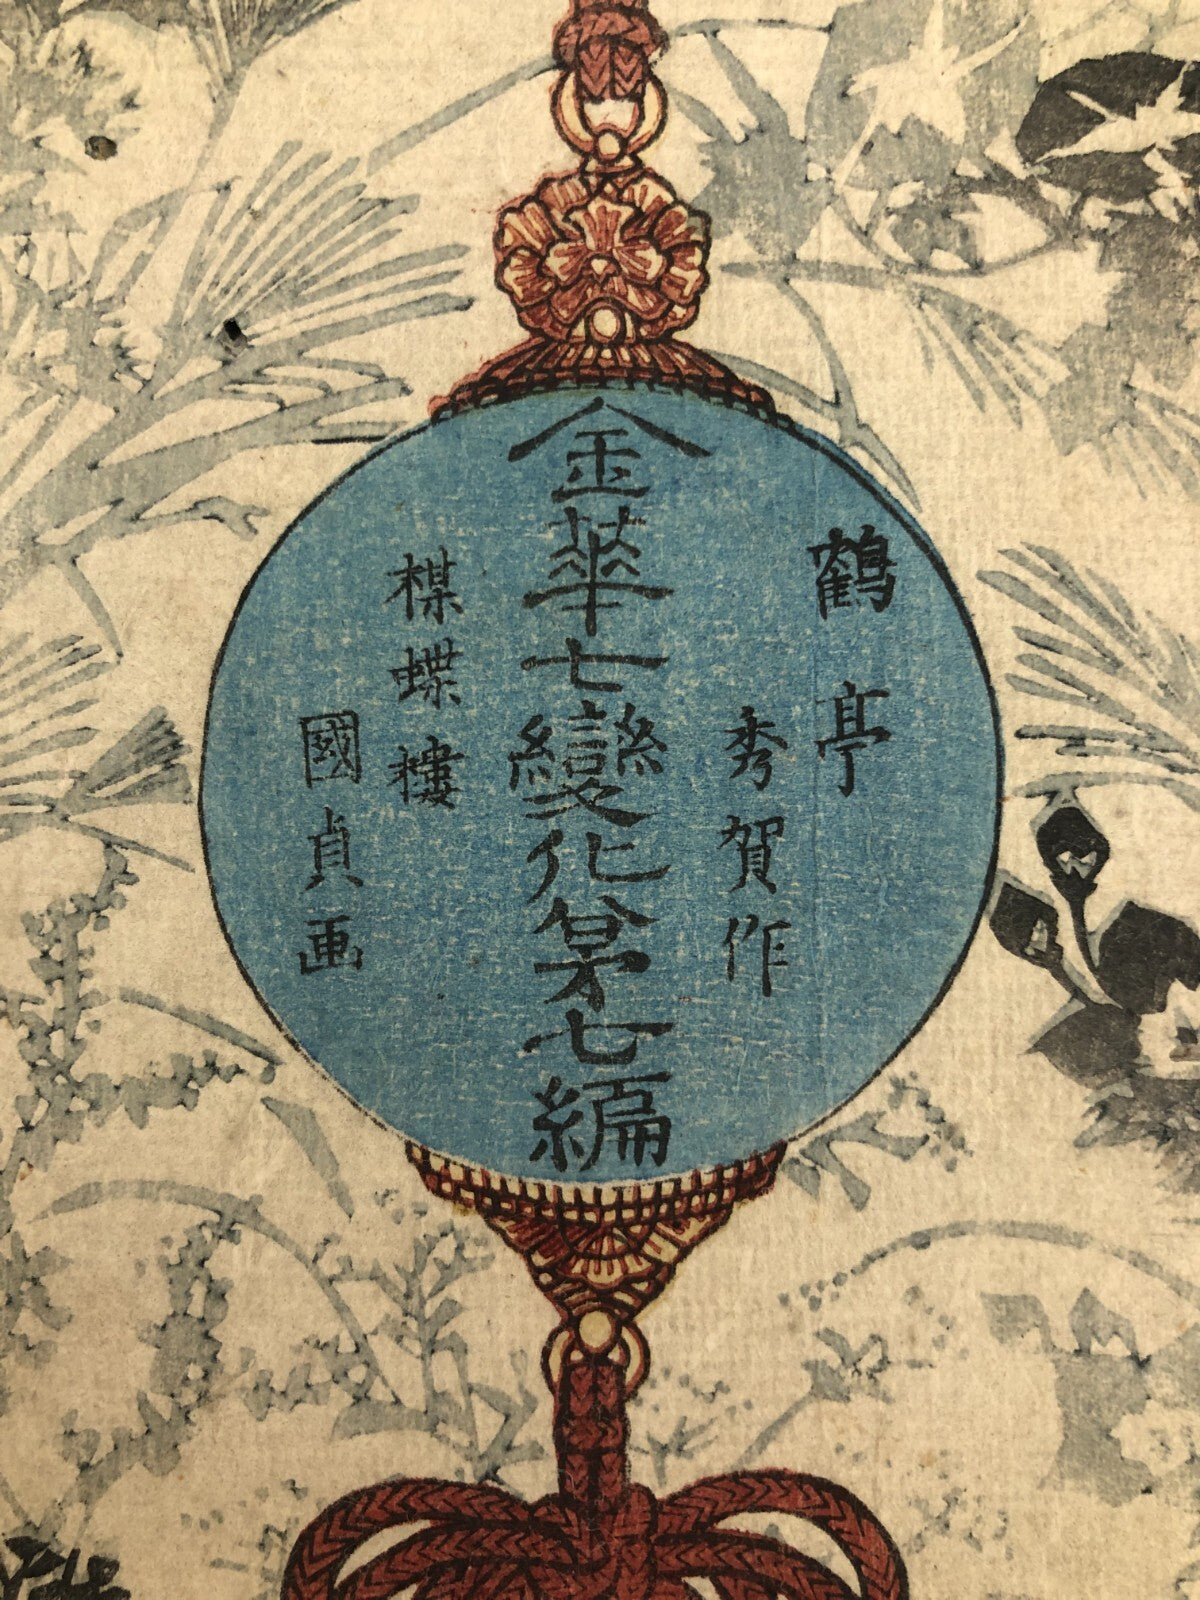 鶴亭
秀賀作
金華七變化㐧七編
楳蝶樓
國貞画